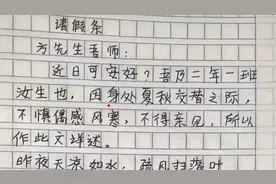 请假条
方先生吾师：
近日可安好？吾乃二年一班
汝生也，因身处夏秋交替之际，
不慎偶感风寒，不得亲见，所以
作此文详述。
昨夜天凉如水，疏风扫落叶